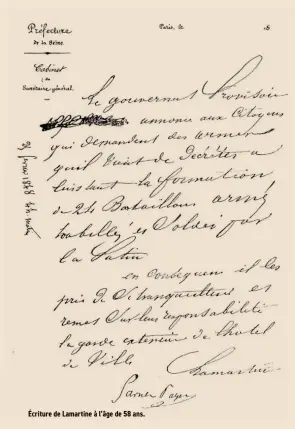 Préfecture
de la Seine
Paris, le 18
Cabinet
du
Secrétaire général
le gouvernement Provisoire
annonce aux Citoyens
qui demandent des armes
qu'il vient de Décréter a
l'instant la formation
de 24 Bataillons armés
habillés et Soldés par
la Patrie
en conséquence il les
prie de se tranquilliser et
remet sur leur responsabilité
la garde extérieure de l'hotel
de Ville
Lamartine
Garnier Pagès
1848
Écriture de Lamartine à l'âge de 58 ans.